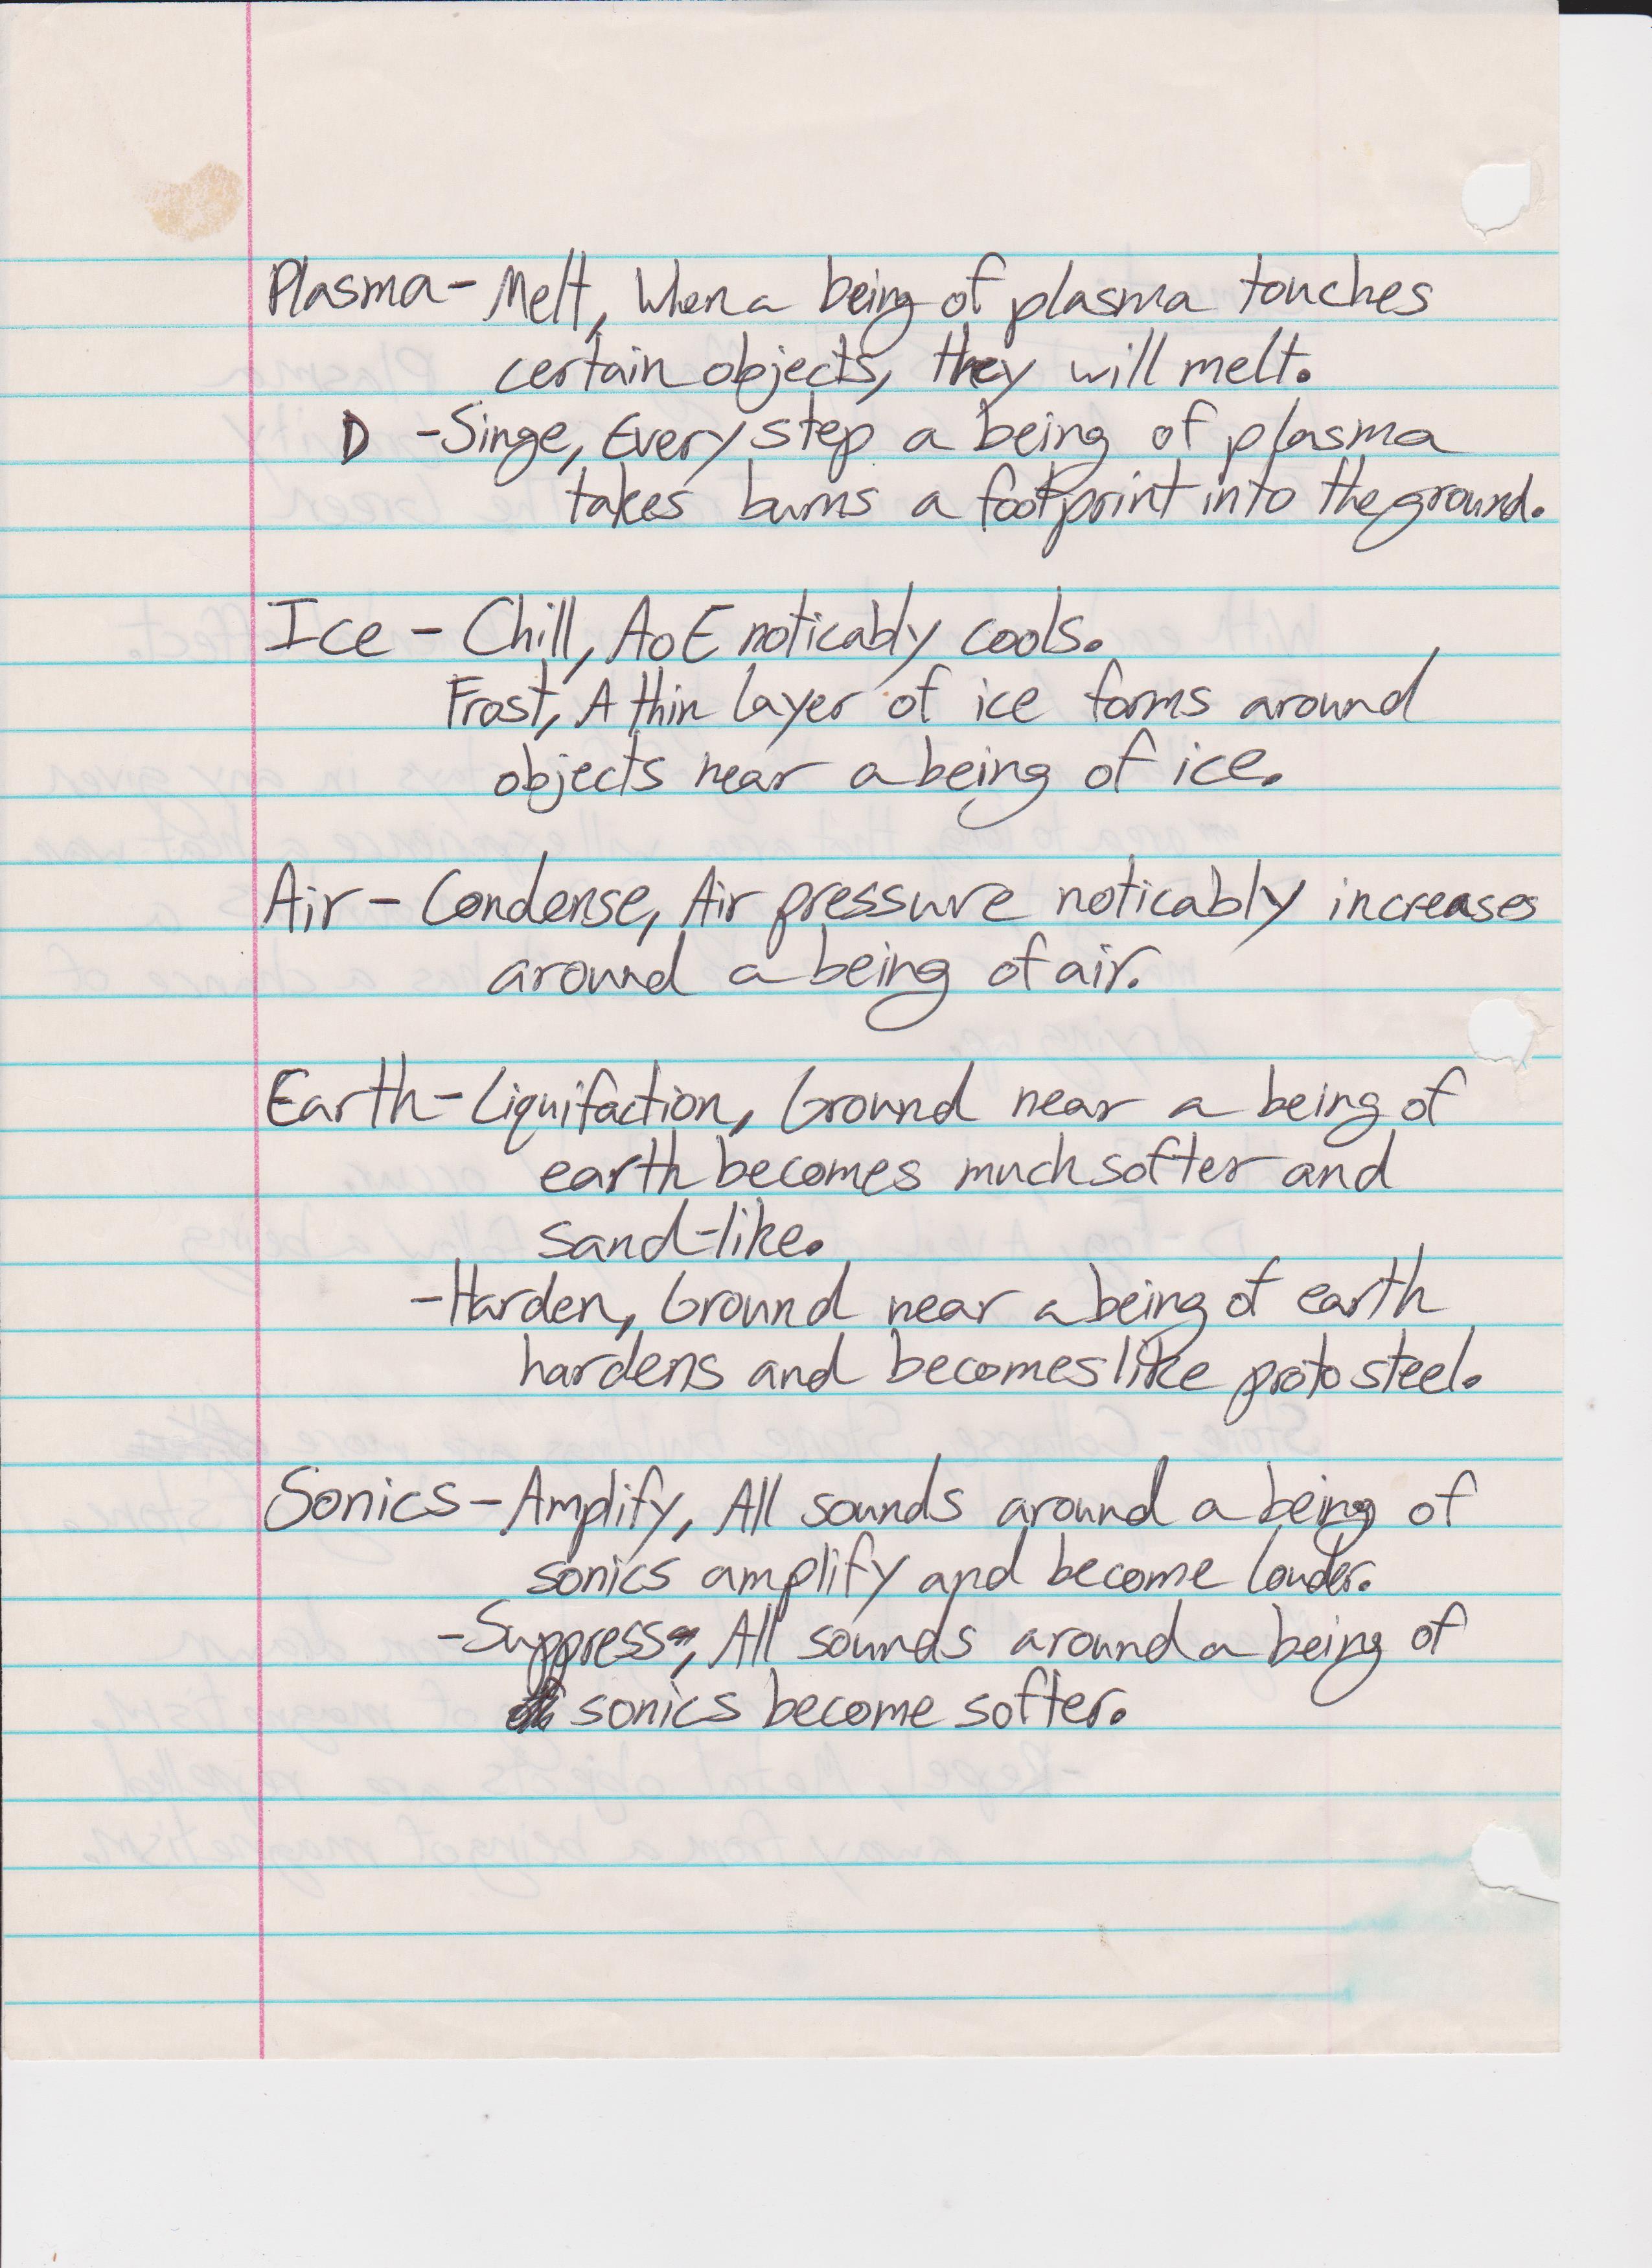 Plasma - Melt, When a being of plasma touches
certain objects, they will melt.
D - Singe, Every step a being of plasma
takes burns a footprint into the ground.
Ice - Chill, AoE noticably cools.
Frost, A thin layer of ice forms around
objects near a being of ice.
Air - Condense, Air pressure noticably increases
around a being of air.
Earth - Liquifaction, Ground near a being of
earth becomes much softer and
sand-like.
- Harden, Ground near a being of earth
hardens and becomes like proto steel.
Sonics - Amplify, All sounds around a being of
sonics amplify and become louder.
- Suppress, All sounds around a being of
sonics become softer.